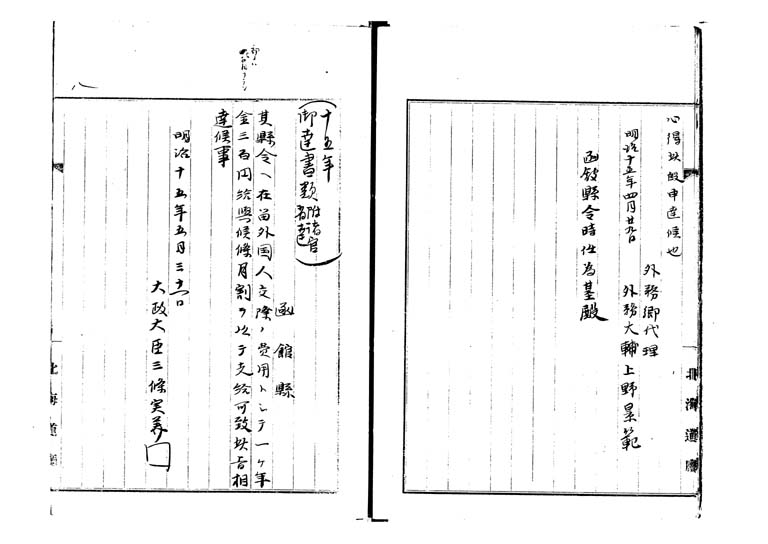 心得此段申達候也
明治十五年四月廿九日
外務卿代理
外務大輔上野景範
函館縣令時任為基殿
北海道廳
十五年
御達書類 附諸官
省達
函館縣
其縣令ヘ在留外国人交際ノ費用トシテ一ヶ年
金三百円給與候條月割ヲ以テ支給可致此旨相
達候事
明治十五年五月三十一日
太政大臣三條実美
北海道廳